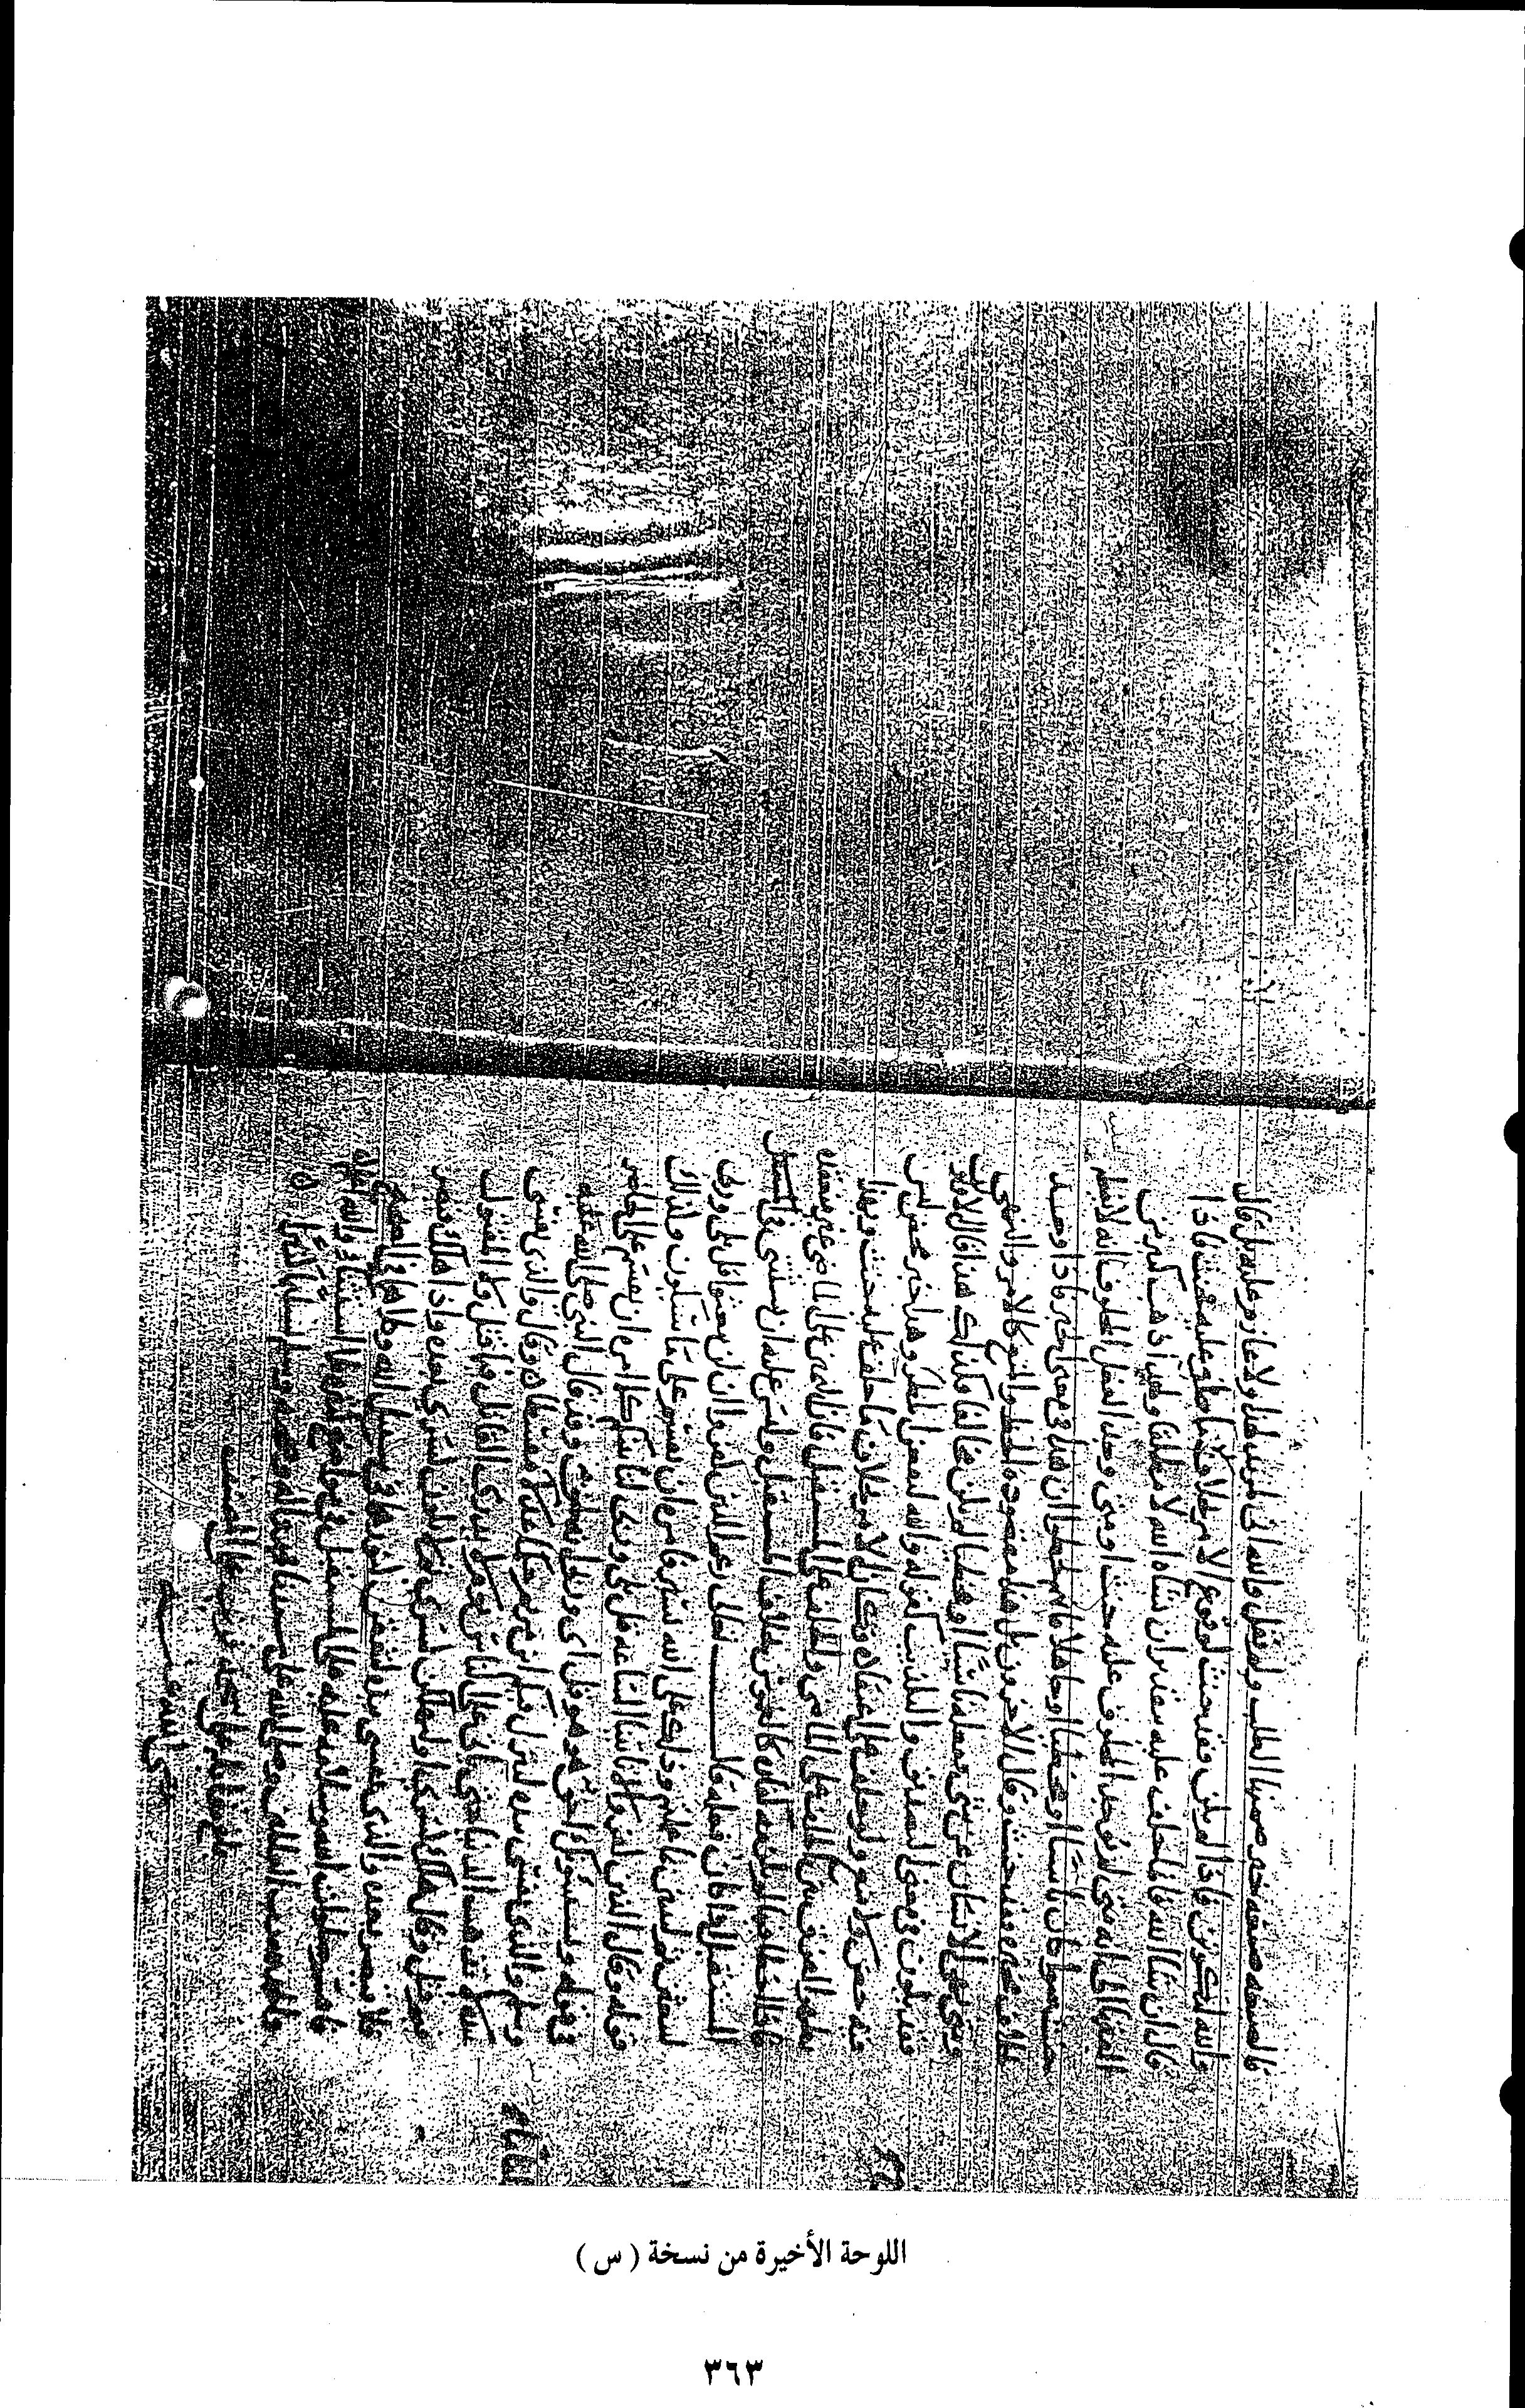 فالصيغة صيغة خبر ضمنها الطلب ولم يقل والله اني لمريد هذا ولا عازم عليه بل قال
والله ليكونن فاذا لم يكن فقد حنث لوقوع الامر بخلاف ما حلف عليه فحنث فاذا
قال ان شا الله فانما حلف عليه بتقدير ان يشاء الله لا مطلقا ولهذا ذهب كثير من
الفقها الى انه متى لم يوجد المحلوف عليه حنث او متى وجد الفعل المحلوف انه لا يفعله
حنث سوا كان ناسيا او مخطيا او جاهلا فانهم لحظوا ان هذا في معنى الخبر فاذا وجد
بخلاف مخبره فقد حنث وقال الاخرون بل هذا مقصوده الحظ والمنع كالامر والنهي
ومتى نهي الانسان عن شي ففعله ناسيا او مخطيا لم يكن مخالفا فكذلك هذا قال الاولون
فقد يكون في معنى التصديق والتكذيب كقوله والله ليقعن المطر وهذا خبر محض ليس
فيه حض ولا منع ولو حلف على اعتقاده فكان الامر بخلاف ما حلف عليه حنث وبهذا
يظهر الفرق بين الحلف على الماضي والحلف على المستقبل فان اليمين على الماضي غير منعقدة
فاذا اخطا فيها لم يلزمه كفارة كالغموس بخلاف المستقبل وليس عليه ان يستثني في المستقبل
اذا كان فعله قال تعالى زعم الذين كفروا ان لن يبعثوا قل بلى وربي
لتبعثن ثم لتنبؤن بما عملتم وذلك على الله يسير فامره ان يقسم على ما سيكون وكذلك
قوله وقال الذين كفروا لا تاتينا الساعة قل بلى وربي لتاتينكم كما امره ان يقسم على الحاضر
في قوله ويستنبؤنك احق هو قل اي وربي انه لحق وقد قال النبي صلى الله عليه
وسلم والذي نفسي بيده لينزلن فيكم ابن مريم حكما عدلا واماما مقسطا وقال والذي نفسي
بيده لا تذهب الدنيا حتى ياتي على الناس يوم لا يدري القاتل فيما قتل ولا المقتول
فيم قتل وقال اذا هلك كسرى او ليهلكن كسرى ثم لا يكون كسرى بعده واذا هلك قيصر
فلا قيصر بعده والذي نفسي بيده لتنفقن كنوزهما في سبيل الله وكلاهما في الصحيح
فاقسم صلوات الله وسلامه عليه على المستقبل في مواضع كثيرة بلا استثناء والله اعلم
والحمد لله رب العالمين وصلى الله على سيدنا محمد واله وصحبه وسلم تسليما كثيرا
اللوحة الأخيرة من نسخة ( س )
٣٦٣